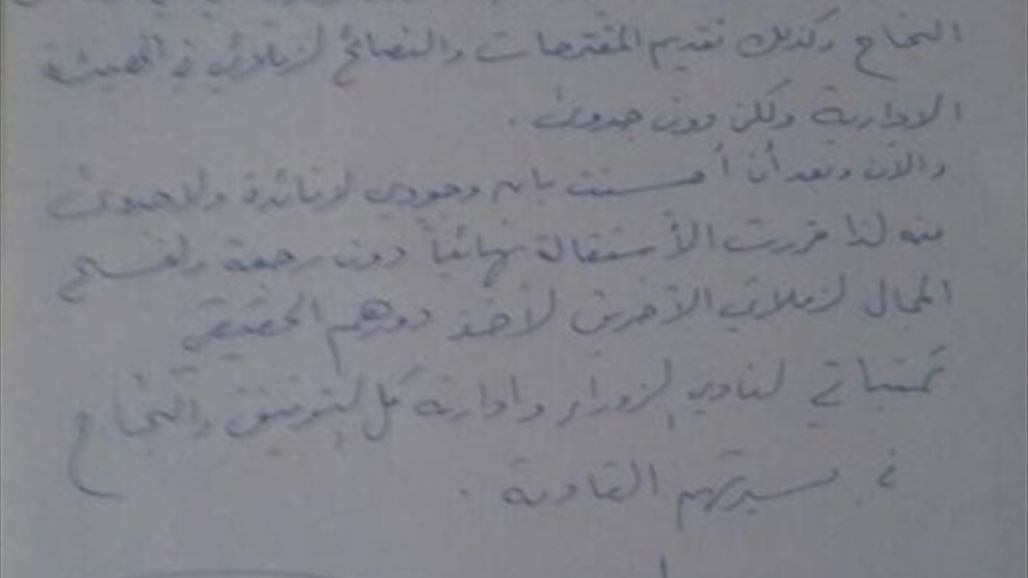 النجاح وكذلك تقديم المقترحات والنصائح لزملائي في الهيئة
الادارية ولكن دون جدوى .
والآن وبعد أن أحسست بان وجودي لا فائدة ولا جدوى
منه لذا قررت الأستقالة نهائياً دون رجعة ولفسح
المجال لزملائي الآخرين لأخذ دورهم الحقيقي
تمنياتي لنادي الزوراء وادارته كل التوفيق والنجاح
في مسيرتهم القادمة .